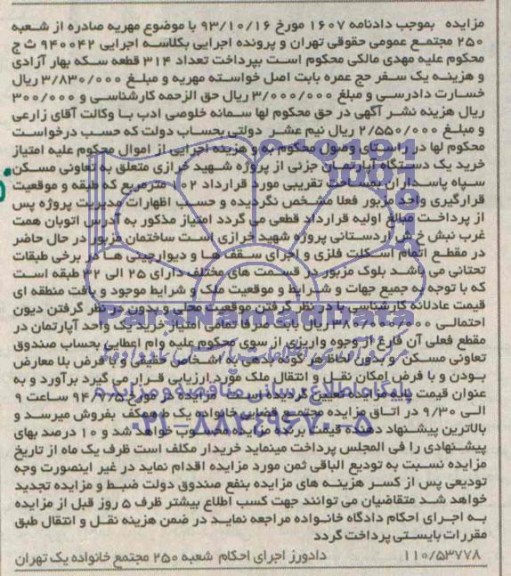 مزایده بموجب دادنامه ۱۶۰۷ مورخ ۹۳/۱۰/۱۶ با موضوع مهریه صادره از شعبه
۲۵۰ مجتمع عمومی حقوقی تهران و پرونده اجرایی بکلاسه اجرایی ۹۴۰۰۴۲ ث ج
محکوم علیه مهدی مالکی محکوم است بپرداخت تعداد ۳۱۴ قطعه سکه بهار آزادی
و هزینه یک سفر حج عمره بابت اصل خواسته مهریه و مبلغ ۳/۸۳۰/۰۰۰ ریال
خسارت دادرسی و مبلغ ۳/۰۰۰/۰۰۰ ریال حق الزحمه کارشناسی و ۳۰۰/۰۰۰
ریال هزینه نشر آگهی در حق محکوم لها سمانه خلوصی ادب با وکالت آقای زارعی
و مبلغ ۲/۵۵۰/۰۰۰ ریال نیم عشر دولتی بحساب دولت که حسب درخواست
محکوم لها در راستای وصول محکوم به و هزینه اجرایی از اموال محکوم علیه امتیاز
خرید یک دستگاه آپارتمان جزئی از پروژه شهید خرازی متعلق به تعاونی مسکن
سپاه پاسداران بمساحت تقریبی مورد قرارداد ۱۰۲ مترمربع که طبقه و موقعیت
قرارگیری واحد مزبور فعلا مشخص نگردیده و حسب اظهارات مدیریت پروژه پس
از پرداخت مبالغ اولیه قرارداد قطعی می گردد امتیاز مذکور به آدرس اتوبان همت
غرب نبش خ ش اردستانی پروژه شهید خرازی است ساختمان مزبور در حال حاضر
در مقطع اتمام اسکلت فلزی و اجرای سقف ها و دیوارچینی ها در برخی طبقات
تحتانی می باشد بلوک مزبور در قسمت های مختلف دارای ۲۵ الی ۳۲ طبقه است
که با توجه به جمیع جهات و شرایط و موقعیت ملک و شرایط موجود و بافت منطقه ای
قیمت عادلانه کارشناسی با در نظر گرفتن موقعیت محلی و بدون در نظر گرفتن دیون
احتمالی ۳۸۶/۰۰۰/۰۰۰ ریال بابت صرفا تمامی امتیاز خرید یک واحد آپارتمان در
مقطع فعلی آن فارغ از وجوه واریزی از سوی محکوم علیه وام اعطایی بحساب صندوق
تعاونی مسکن و بدون لحاظ هر گونه بدهی به اشخاص حقیقی و با فرض بلا معارض
بودن و با فرض امکان نقل و انتقال ملک مورد ارزیابی قرار می گیرد برآورد و به
عنوان قیمت پایه مزایده تعیین گردیده است مزایده در مورخ ساعت ۹
الی ۹/۳۰ در اتاق مزایده مجتمع قضایی خانواده یک ط همکف بفروش میرسد و
بالاترین پیشنهاد دهنده قیمت برنده مزایده محسوب خواهد شد و ۱۰ درصد بهای
پیشنهادی را فی المجلس پرداخت مینماید خریدار مکلف است ظرف یک ماه از تاریخ
مزایده نسبت به تودیع الباقی ثمن مورد مزایده اقدام نماید در غیر اینصورت وجه
تودیعی پس از کسر هزینه های مزایده بنفع صندوق دولت ضبط و مزایده تجدید
خواهد شد متقاضیان می توانند جهت کسب اطلاع بیشتر ظرف ۵ روز قبل از مزایده
به اجرای احکام دادگاه خانواده مراجعه نمایید در ضمن هزینه نقل و انتقال طبق
مقررات بایستی پرداخت گردد
۱۱۰/۵۳۷۷۸ دادورز اجرای احکام شعبه ۲۵۰ مجتمع خانواده یک تهران
۰۲۱-۸۸۳۴۹۶۷۰-۵